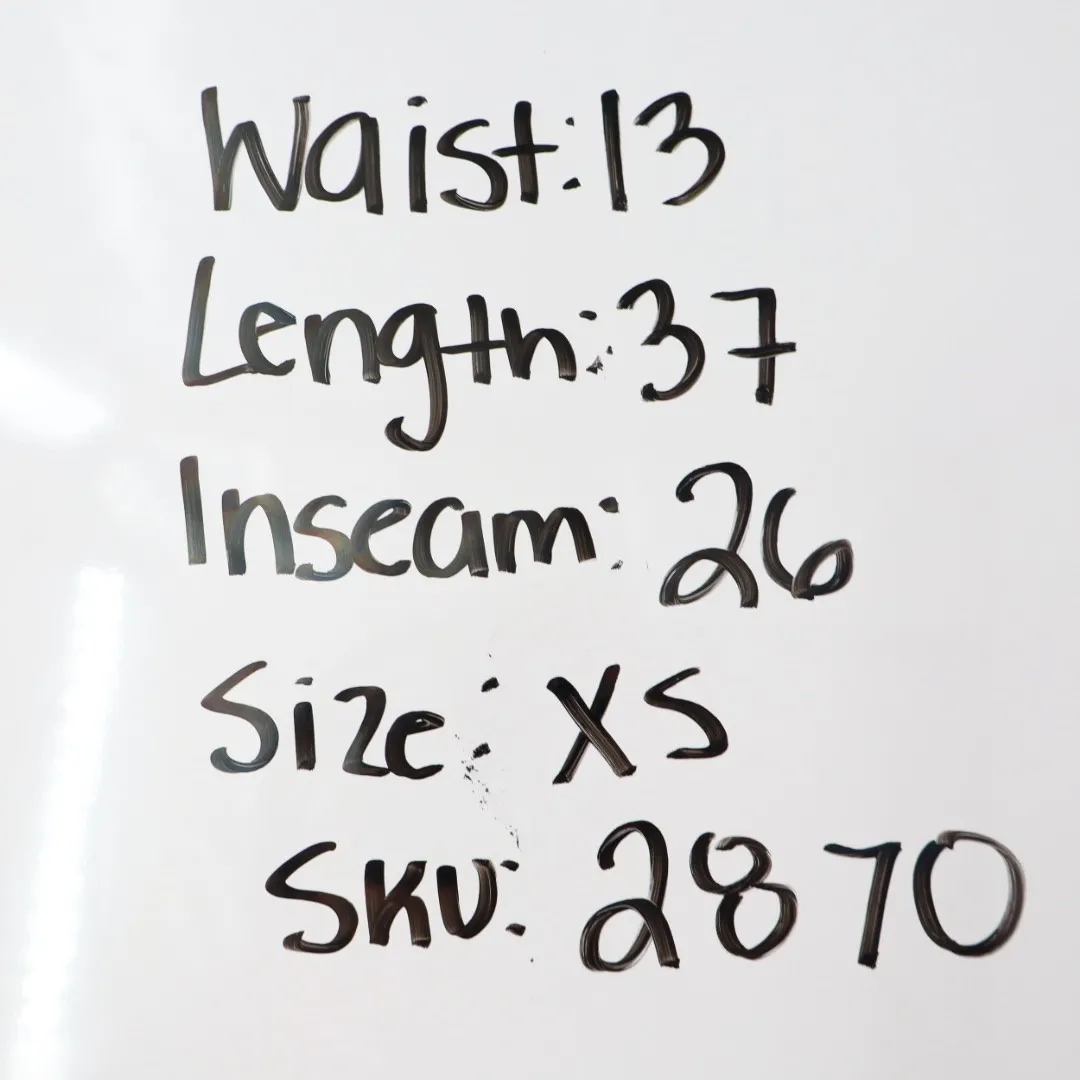 Waist: 13
Length: 37
Inseam: 26
Size: XS
SKU: 2870